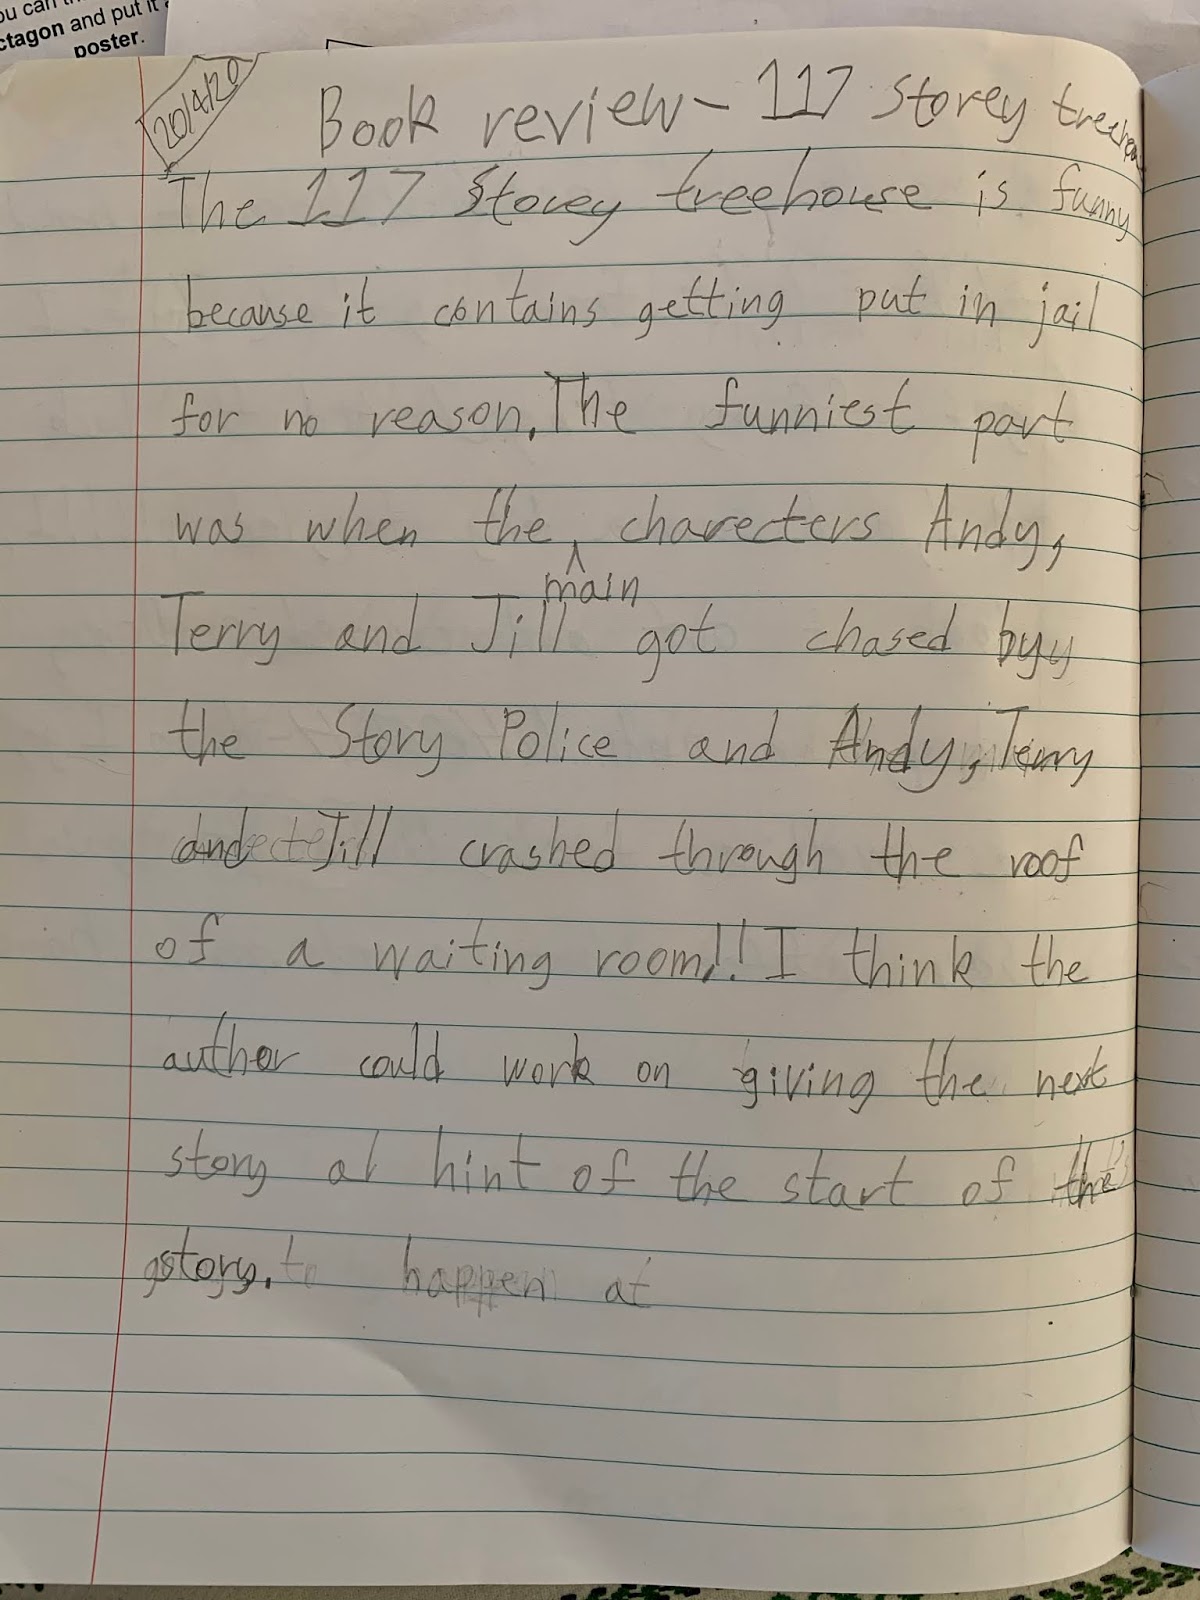 ou can th
ctagon and put it
poster.
20/4/20
Book review - 117 Storey
The 117 Storey treehouse is funny
because it contains getting put in jail
for no reason. The funniest part
was when the charecters Andy,
main
Terry and Jill got chased by
the Story Police and Andy, Terry
and Jill crashed through the roof
of a waiting room!! I think the
author could work on giving the next
story a hint of the start of the
story. to happen at